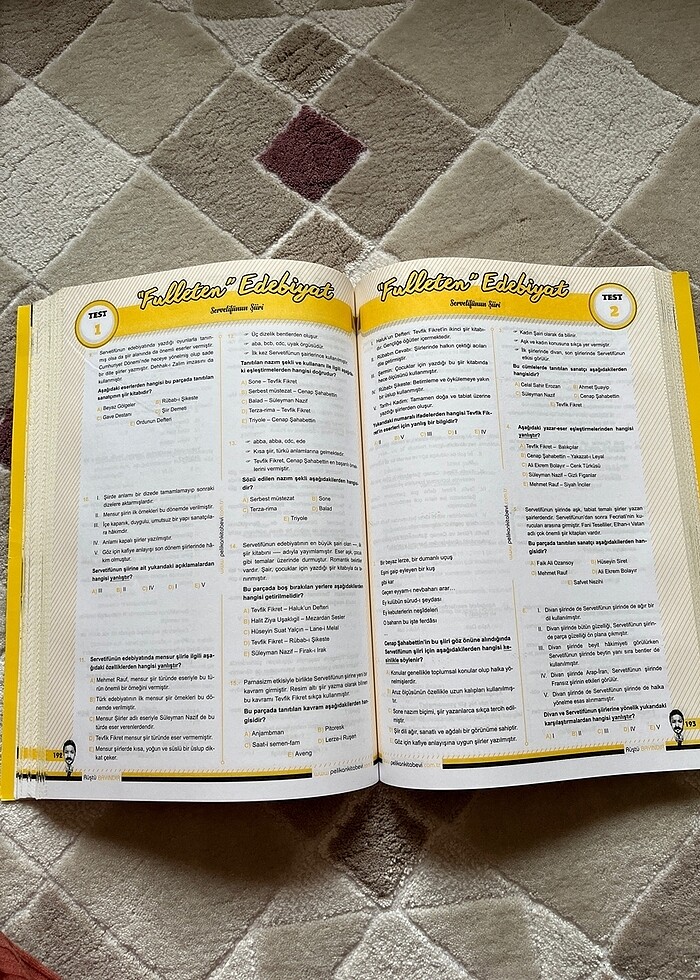 "Fulleten" Edebiyat
Servetifünun Şiiri
TEST
1
Servetifünun edebiyatında yazdığı oyunlarla tanın-
mış olsa da şiir alanında da önemli eserler vermiştir.
Cumhuriyet Dönemi'nde heceye yönelmiş olup sade
bir dille şiirler yazmıştır. Dehhak-ı Zalim imzasını da
kullanmıştır.
Aşağıdaki eserlerden hangisi bu parçada tanıtılan
sanatçının şiir kitabıdır?
A) Beyaz Gölgeler
B) Rübab-ı Şikeste
C) Gave Destanı
D) Şiir Demeti
E) Ordunun Defteri
10.
I. Şiirde anlamı bir dizede tamamlamayıp sonraki
dizelere aktarmışlardır.
II. Mensur şiirin ilk örnekleri bu dönemde verilmiştir.
III. İçe kapanık, duygulu, umutsuz bir yapı sanatçıla-
ra hâkimdir.
IV. Anlamı kapalı şiirler yazılmıştır.
V. Göz için kafiye anlayışı son dönem şiirlerinde hâ-
kim olmuştur.
Servetifünun şiirine ait yukarıdaki açıklamalardan
hangisi yanlıştır?
A) III
B) II
C) IV
D) I
E) V
11. Servetifünun edebiyatında mensur şiirle ilgili aşa-
ğıdaki özelliklerden hangisi yanlıştır?
A) Mehmet Rauf, mensur şiir türünde eseriyle bu tü-
rün önemli bir örneğini vermiştir.
B) Türk edebiyatında ilk mensur şiir örnekleri bu dö-
nemde verilmiştir.
C) Mensur Şiirler adlı eseriyle Süleyman Nazif de bu
türde eser verenlerdendir.
D) Tevfik Fikret mensur şiir türünde eser vermemiştir.
E) Mensur şiirlerde kısa, yoğun ve süslü bir üslup dik-
kat çeker.
192
Rüştü BAYINDIR
☞ Üç dizelik bentlerden oluşur.
☞ aba, bcb, cdc, uyak örgüsüdür.
☞ İlk kez Servetifünun şairlerince kullanılmıştır.
Tanıtılan nazım şekli ve kullananı ile ilgili aşağıda-
ki eşleştirmelerden hangisi doğrudur?
A) Sone – Tevfik Fikret
B) Serbest müstezat – Cenap Şahabettin
C) Balad – Süleyman Nazif
D) Terza-rima – Tevfik Fikret
E) Triyole – Cenap Şahabettin
13.
☞ abba, abba, ccd, ede
☞ Kısa şiir, türkü anlamlarına gelmektedir.
☞ Tevfik Fikret, Cenap Şahabettin en başarılı örnek-
lerini vermiştir.
Sözü edilen nazım şekli aşağıdakilerden hangisi-
dir?
A) Serbest müstezat
B) Sone
C) Terza-rima
D) Balad
E) Triyole
14.
Servetifünun edebiyatının en büyük şairi
şiir kitabını ---- adıyla yayımlamıştır. Eser aşk, çocuk
gibi temalar üzerinde durmuştur. Romantik betimler
vardır. Şair; çocuklar için yazdığı şiir kitabıyla da ta-
nınmıştır.
Bu parçada boş bırakılan yerlere aşağıdakilerden
hangisi getirilmelidir?
A) Tevfik Fikret – Haluk'un Defteri
B) Halit Ziya Uşaklıgil – Mezardan Sesler
C) Hüseyin Suat Yalçın – Lane-i Melal
D) Tevfik Fikret – Rübab-ı Şikeste
E) Süleyman Nazif – Firak-ı Irak
15. Parnasizm etkisiyle birlikte Servetifünun şiirine yeni bir
kavram girmiştir. Resim altı şiir yazma olarak bilinen
bu kavramı Tevfik Fikret sıkça kullanmıştır.
Bu parçada tanıtılan kavram aşağıdakilerden han-
gisidir?
A) Anjambman
B) Pitoresk
C) Saat-i semen-fam
D) Lerze-i Ruşen
E) Aveng
pelikankitabevi
www.pelikankitabevi
"Fulleten" Edebiyat
Servetifünun Şiiri
TEST
2
I. Haluk'un Defteri: Tevfik Fikret'in ikinci şiir kitabı-
dır. Gençliğe öğütler içermektedir.
II. Rübabın Cevabı: Şiirlerinde halkın çektiği acıları
dile getirmiştir.
III. Şermin: Çocuklar için yazdığı bu şiir kitabında
hece ölçüsünü kullanmıştır.
IV. Rübab-ı Şikeste: Betimleme ve öykülemeye yakın
bir üslup kullanmıştır.
V. Tarih-i Kadim: Tamamen doğa ve tabiat üzerine
yazdığı şiirlerden oluşur.
Yukarıdaki numaralı ifadelerden hangisi Tevfik Fik-
ret'in eserleri için yanlış bir bilgidir?
A) II
B) V
C) III
D) I
E) IV
Bir beyaz lerze, bir dumanlı uçuş
Eşini gaip eyleyen bir kuş
gibi kar
Geçen eyyam-ı nevbaharı arar…
Ey kulûbün sürud-ı şeydası
Ey kebuterlerin neşîdeleri
O baharın bu işte ferdâsı
Cenap Şahabettin'in bu şiiri göz önüne alındığında
Servetifünun şiiri için aşağıdakilerden hangisi ke-
sinlikle söylenir?
Konular genellikle toplumsal konular olup halka yö-
nelmişlerdir.
Aruz ölçüsünün özellikle uzun kalıpları kullanılmış-
tır.
Sone nazım biçimi, şiir yazarlarınca sıkça tercih edil-
miştir.
Şiir dili ağır, sanatlı ve ağdalı bir görünüme sahiptir.
Göz için kafiye anlayışına uygun şiirler yazılmıştır.
pelikankitabevi.com.tr
☞ Kadın Şairi olarak da bilinir.
☞ Aşk ve kadın konusuna sıkça yer vermiştir.
☞ İlk şiirlerinde divan, son şiirlerinde Servetifünun
etkisi görülür.
Bu cümlelerde tanıtılan sanatçı aşağıdakilerden
hangisidir?
A) Celal Sahir Erozan
B) Ahmet Şuayip
C) Süleyman Nazif
D) Cenap Şahabettin
E) Tevfik Fikret
4. Aşağıdaki yazar-eser eşleştirmelerinden hangisi
yanlıştır?
A) Tevfik Fikret – Balıkçılar
B) Cenap Şahabettin – Yakazat-ı Leyal
C) Ali Ekrem Bolayır – Cenk Türküsü
D) Süleyman Nazif – Gizli Figanlar
E) Mehmet Rauf – Siyah İnciler
Servetifünun şiirinde aşk, tabiat temalı şiirler yazan
şairlerdendir. Servetifünun'dan sonra Fecriati'nin ku-
rucuları arasına girmiştir. Fani Teselliler, Elhan-ı Vatan
adlı çok önemli eserleri vardır.
Bu parçada tanıtılan sanatçı aşağıdakilerden han-
gisidir?
A) Faik Ali Ozansoy
B) Hüseyin Siret
C) Mehmet Rauf
D) Ali Ekrem Bolayır
E) Safvet Nezihi
I. Divan şiirinde de Servetifünun şiirinde de ağır bir
dil kullanılmıştır.
II. Divan şiirinde bütün güzelliği, Servetifünun şiirin-
de parça güzelliği ön plana çıkmıştır.
III. Divan şiirinde beyit hâkimiyeti görülürken
Servetifünun şiirinde beytin yanı sıra bentler de
kullanılmıştır.
IV. Divan şiirinde Arap-İran, Servetifünun şiirinde
Fransız şiirinin etkileri görülür.
V. Divan şiirinde de Servetifünun şiirinde de halka
yönelme esas alınmamıştır.
Divan ve Servetifünun şiirlerine yönelik yukarıdaki
karşılaştırmalardan hangisi yanlıştır?
A) I
B) II
C) III
D) IV
E) V
Rüştü BAYINDIR
193